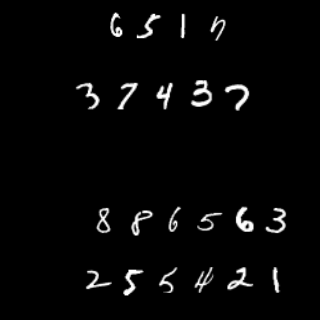 6 5 1 7
3 7 4 3 7
8 8 6 5 6 3
2 5 5 4 2 1